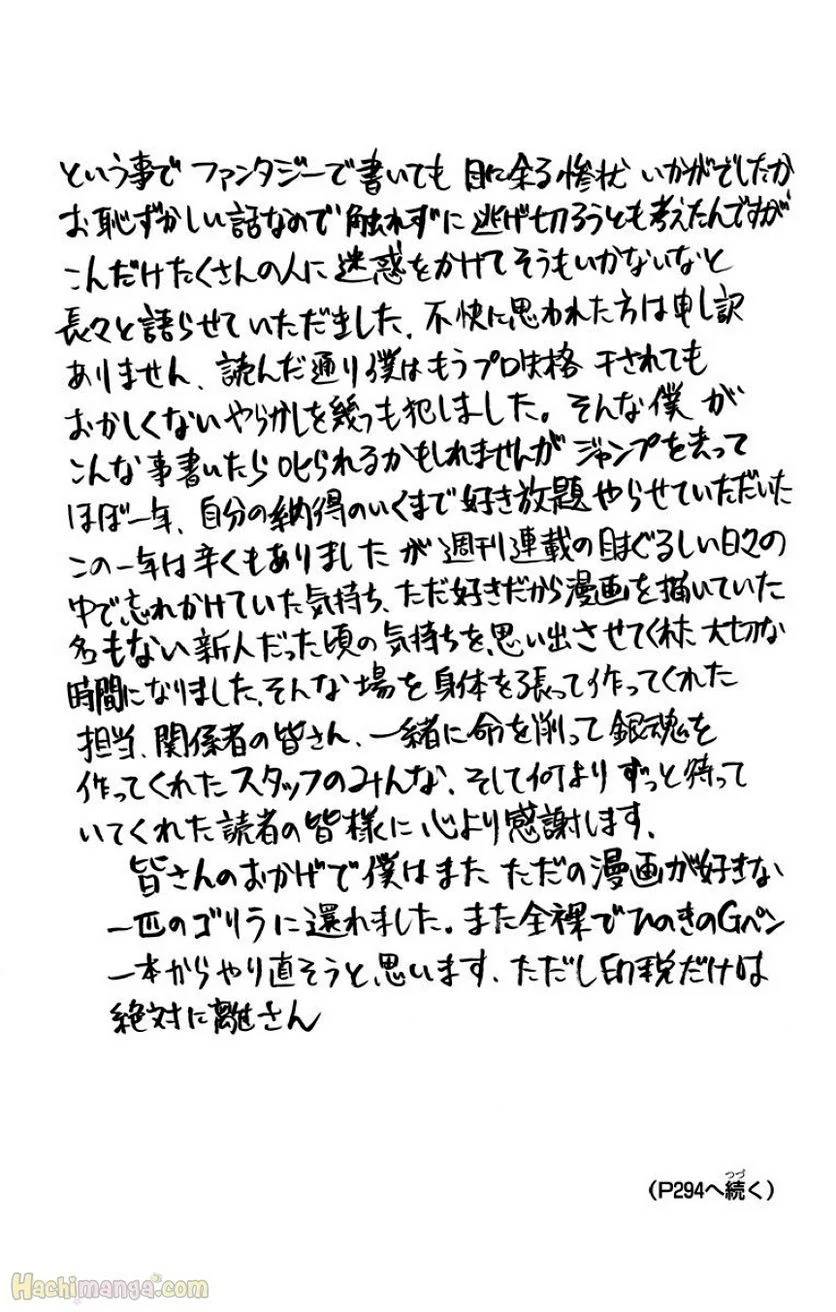 という事で ファンタジーで書いても 目に余る惨状 いかがでしたか
お恥ずかしい話なので 触れずに 逃げ切ろうとも考えたんですが
こんだけたくさんの人に 迷惑をかけてそうもいかないなと
長々と語らせていただました、不快に思われた方は申し訳
ありません、読んだ通り僕はもうプロ失格 干されても
おかしくないやらかしを幾つも犯しました。そんな僕が
こんな事書いたら叱られるかもしれませんが ジャンプを去って
ほぼ一年、自分の納得のいくまで好き放題やらせていただいた
この一年は辛くもありましたが 週刊連載の目まぐるしい日々の
中で忘れかけていた気持ち、ただ好きだから漫画を描いていた
名もない新人だった頃の気持ちを、思い出させてくれた 大切な
時間になりました、そんな場を身体を張って作ってくれた
担当、関係者の皆さん、一緒に命を削って銀魂を
作ってくれたスタッフのみんな、そして何より ずっと待って
いてくれた読者の皆様に 心より感謝します、
皆さんのおかげで僕はまた ただの漫画が好きな
一匹のゴリラに還れました。また全裸でひのきのGペン
一本からやり直そうと、思います、ただし印税だけは
絶対に離さん
(P294へ続く)
つづ
Hachimanga.com